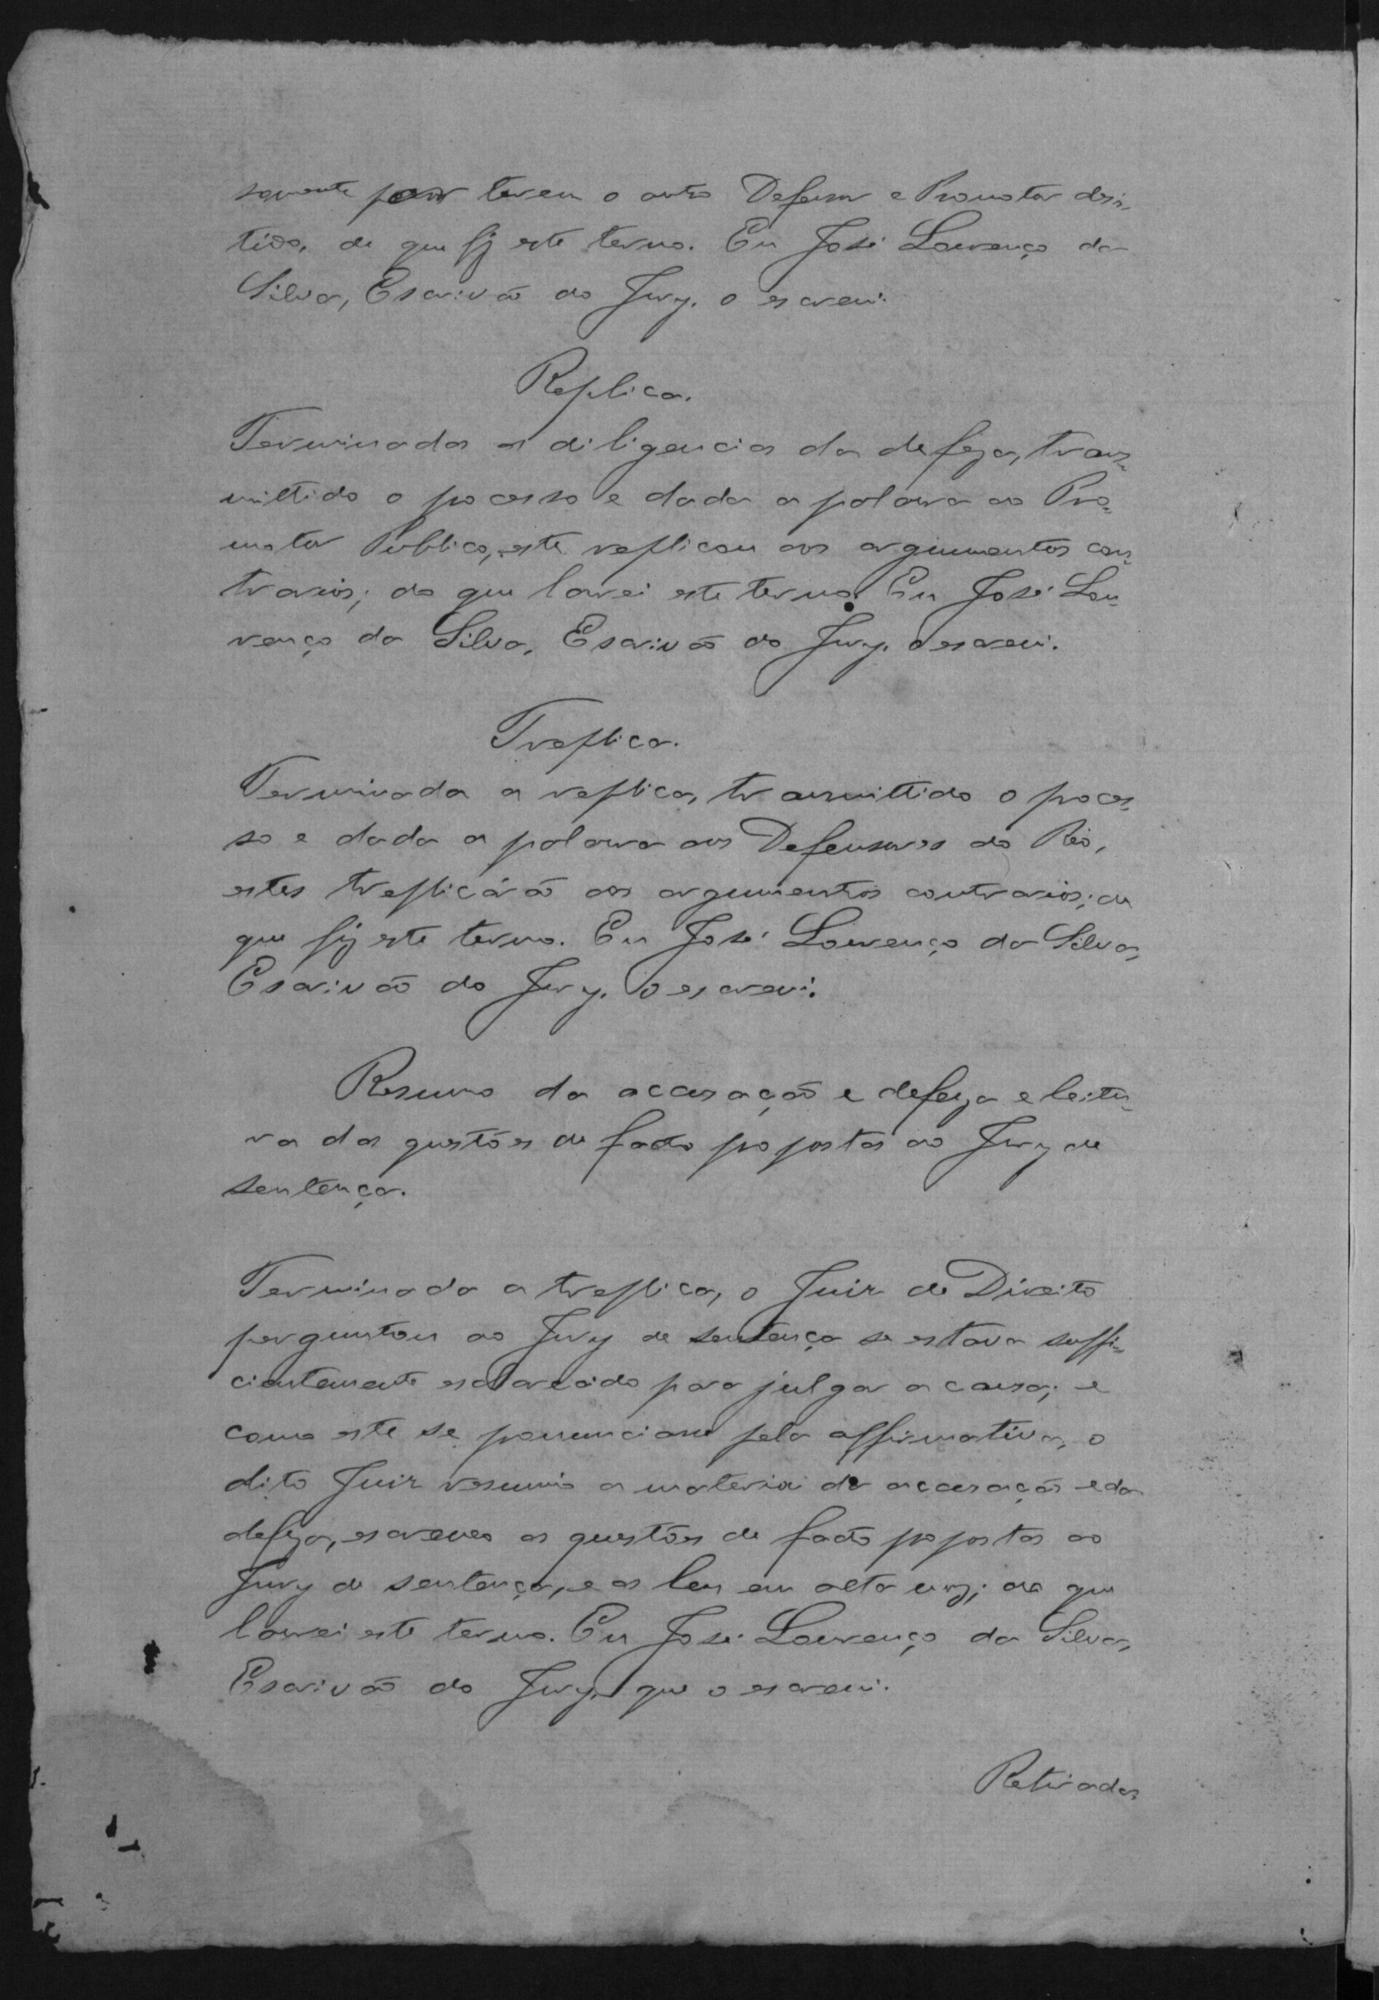 somente por terem o outro Defensor e Promotor desis-
tido, de que fiz este termo. Eu José Lourenço da
Silva, Escrivão do Jury, o escrevi.
Replica.
Terminadas as diligencias da defeza, trans-
mittido o processo e dada a palavra ao Pro-
motor Publico, este replicou aos argumentos con-
trarios; do que lavrei este termo. Eu José Lou-
renço da Silva, Escrivão do Jury, o escrevi.
Treplica.
Terminada a replica, transmittido o proces-
so e dada a palavra aos Defensores do Réo,
estes treplicárão aos argumentos contrarios; de
que fiz este termo. Eu José Lourenço da Silva,
Escrivão do Jury, o escrevi.
Resumo da accusação e defeza e leitu-
ra das questões de facto propostas ao Jury de
sentença.
Terminada a treplica, o Juiz de Direito
perguntou ao Jury de sentença se estava suffi-
cientemente esclarecido para julgar a causa; e
como este se pronunciasse pela affirmativa, o
dito Juiz resumio a materia da accusação e da
defeza, escreveo as questões de facto propostas ao
Jury de sentença, e as leu em alta voz; do que
lavrei este termo. Eu José Lourenço da Silva,
Escrivão do Jury, que o escrevi.
Retirada